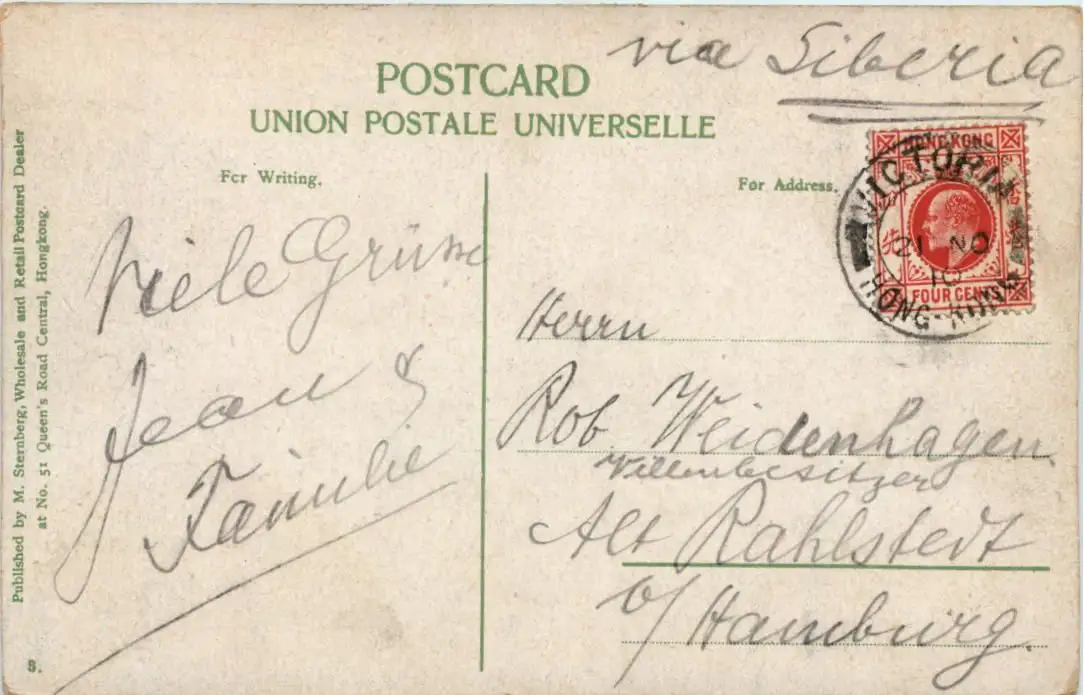 via Siberia
POSTCARD
UNION POSTALE UNIVERSELLE
For Writing.
For Address.
HONG KONG
FOUR CENTS
VICTORIA
21 NO
10
HONG-KONG
Viele Grüsse
Jean &
Familie
Herrn
Rob. Weidenhagen
Villenbesitzer
Alt Rahlstedt
b/ Hamburg.
Published by M. Sternberg, Wholesale and Retail Postcard Dealer
at No. 51 Queen's Road Central, Hongkong.
S.